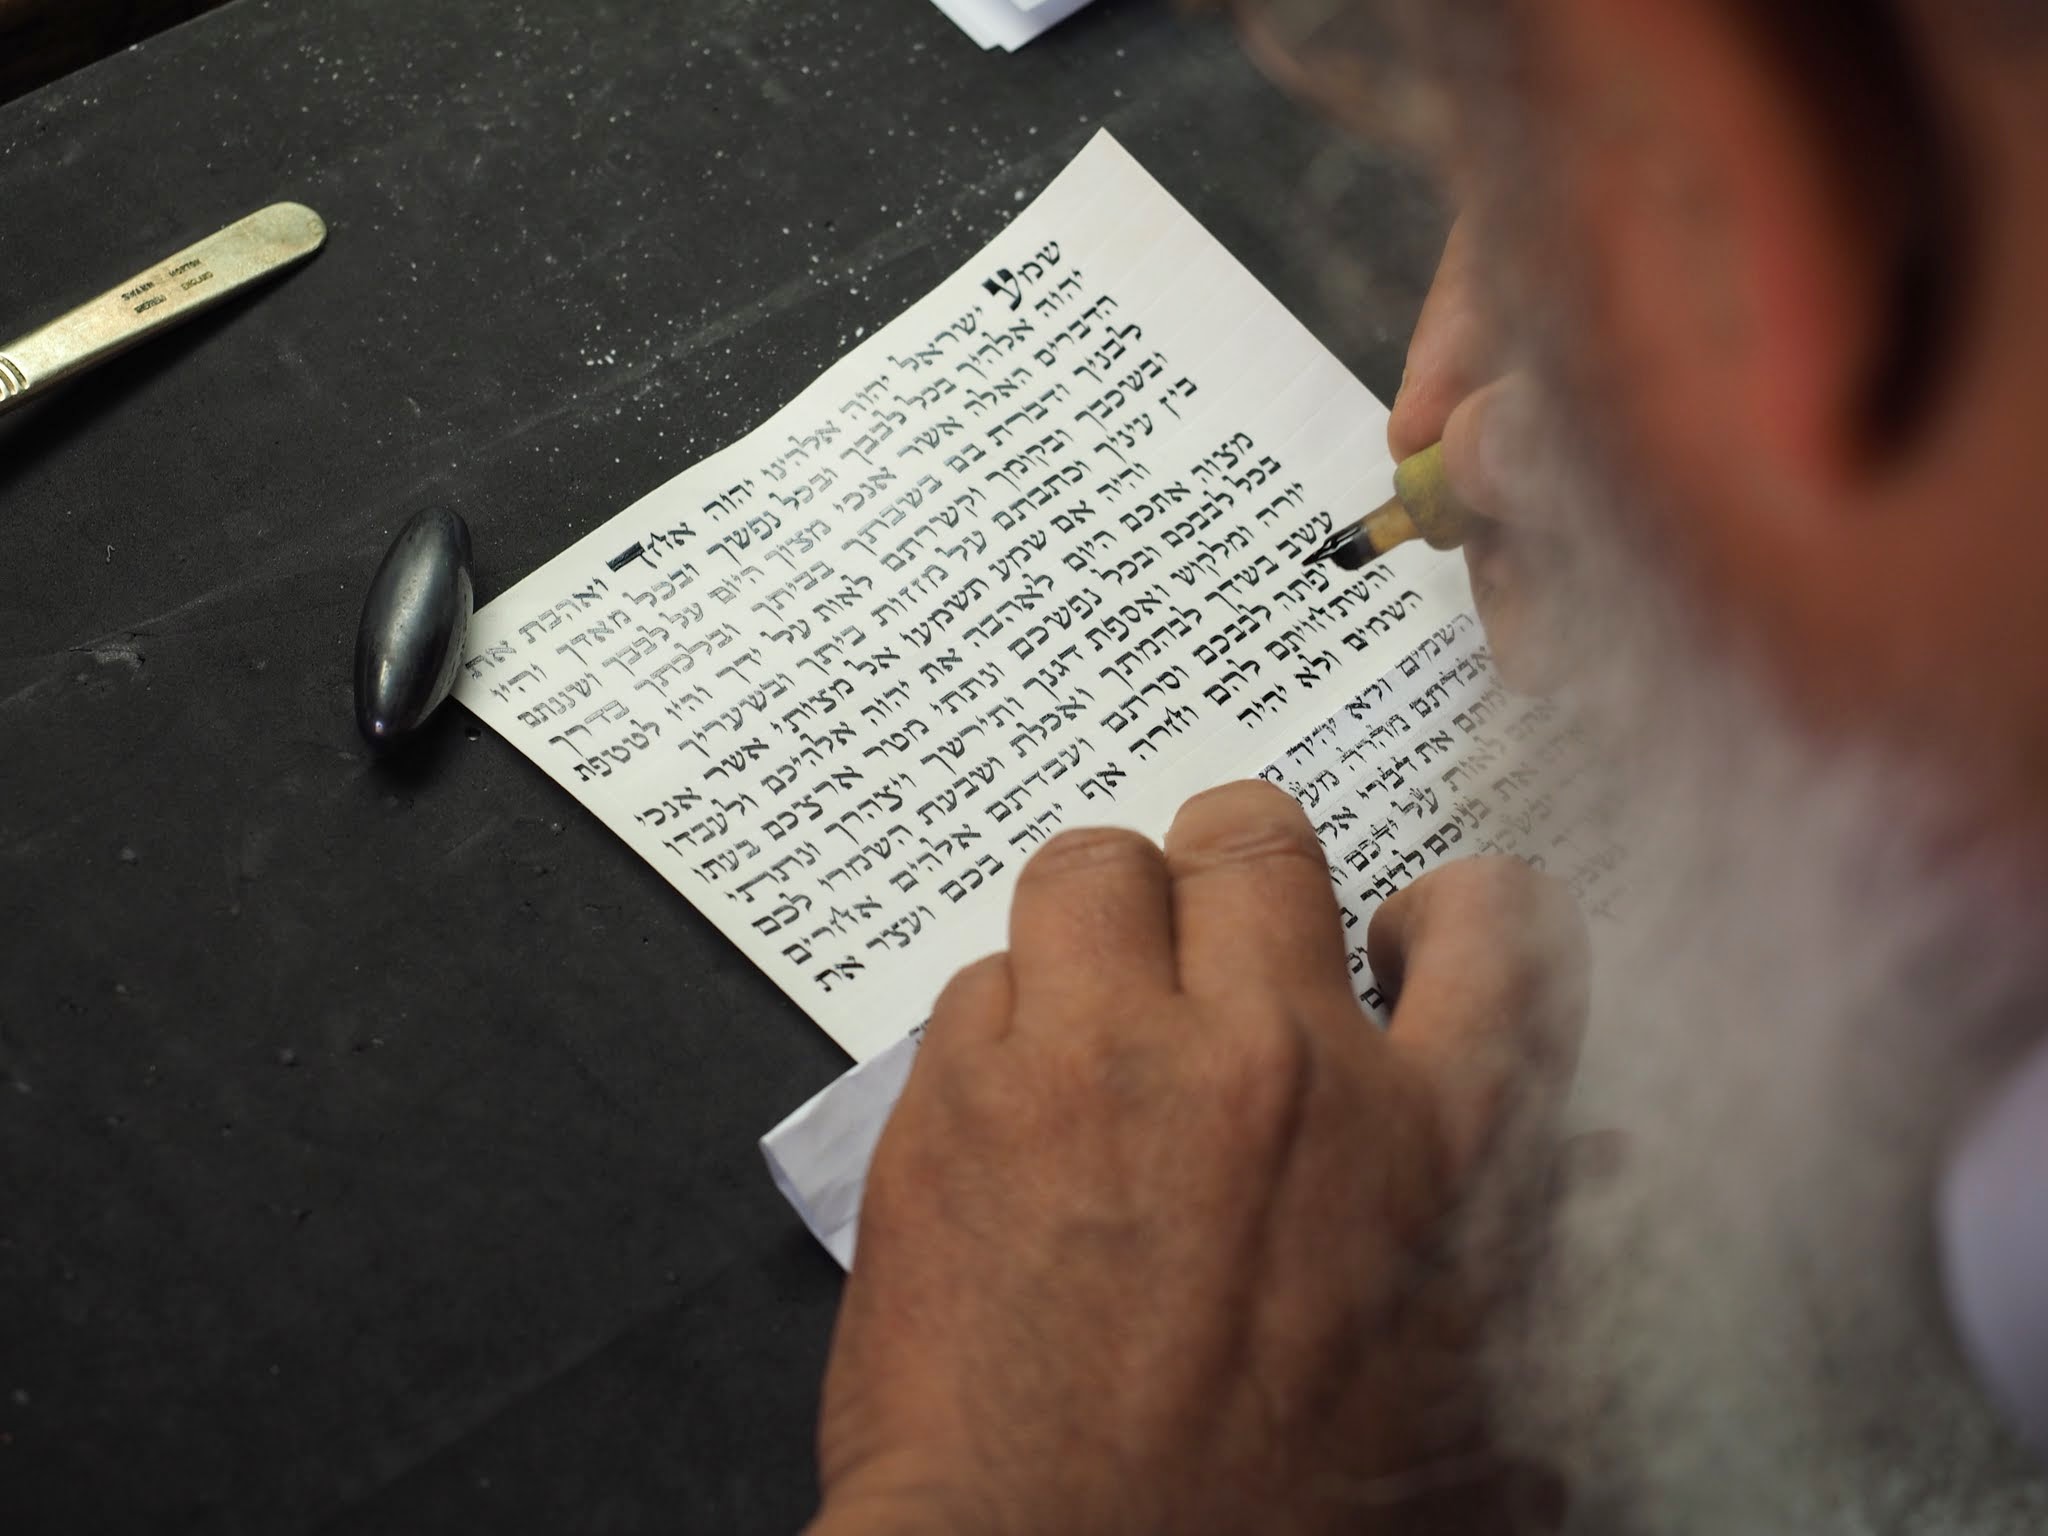 שמע ישראל יהוה אלהינו יהוה אחד ואהבת את
יהוה אלהיך בכל לבבך ובכל נפשך ובכל מאדך והיו
הדברים האלה אשר אנכי מצוך היום על לבבך ושננתם
לבניך ודברת בם בשבתך בביתך ובלכתך בדרך
ובשכבך ובקומך וקשרתם לאות על ידך והיו לטטפת
בין עיניך וכתבתם על מזזות ביתך ובשעריך
והיה אם שמע תשמעו אל מצותי אשר אנכי
מצוה אתכם היום לאהבה את יהוה אלהיכם ולעבדו
בכל לבבכם ובכל נפשכם ונתתי מטר ארצכם בעתו
יורה ומלקוש ואספת דגנך ותירשך ויצהרך ונתתי
עשב בשדך לבהמתך ואכלת ושבעת השמרו לכם
יפתה לבבכם וסרתם ועבדתם אלהים אחרים
והשתחויתם להם וחרה אף יהוה בכם ועצר את
השמים ולא יהיה
השמים ולא יהיה
אבדתם מהרה
את דברי
לאות על ידכם
את בניכם לדבר
SWANN MORTON
SHEFFIELD ENGLAND